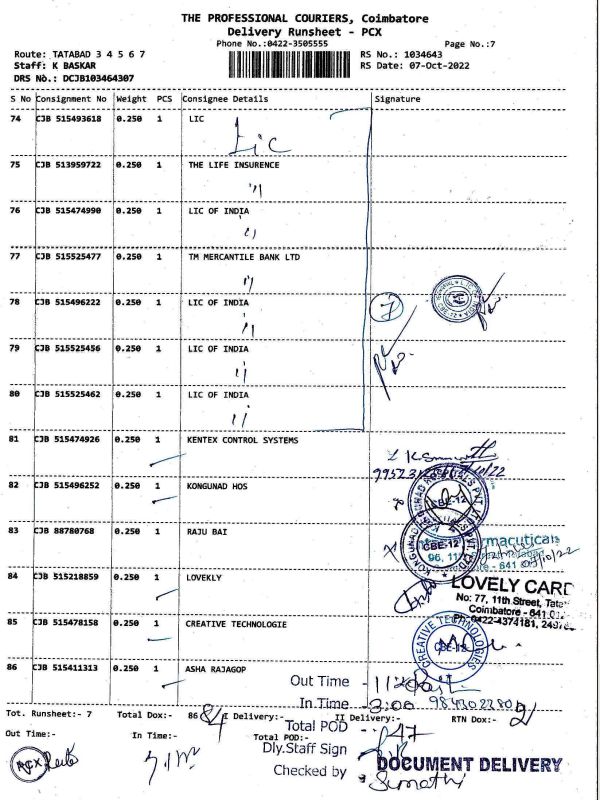 THE PROFESSIONAL COURIERS, Coimbatore
Delivery Runsheet - PCX
Phone No.:0422-3505555
Page No.:7
Route: TATABAD 3 4 5 6 7
RS No.: 1034643
Staff: K BASKAR
RS Date: 07-Oct-2022
DRS No.: DCJB103464307
S No Consignment No Weight PCS Consignee Details Signature
74 CJB 515493618 0.250 1 LIC
Lic
75 CJB 513959722 0.250 1 THE LIFE INSURENCE
76 CJB 515474990 0.250 1 LIC OF INDIA
77 CJB 515525477 0.250 1 TM MERCANTILE BANK LTD
78 CJB 515496222 0.250 1 LIC OF INDIA
7
79 CJB 515525456 0.250 1 LIC OF INDIA
80 CJB 515525462 0.250 1 LIC OF INDIA
81 CJB 515474926 0.250 1 KENTEX CONTROL SYSTEMS
82 CJB 515496252 0.250 1 KONGUNAD HOS
CBE-12
83 CJB 88780768 0.250 1 RAJU BAI
CBE-12
macuticals
84 CJB 515218859 0.250 1 LOVEKLY
LOVELY CARD
No: 77, 11th Street,
Coimbatore - 641
Ph: 0422-4374181,
85 CJB 515478158 0.250 1 CREATIVE TECHNOLOGIE
CREATIVE TECHNOLOGIES
86 CJB 515411313 0.250 1 ASHA RAJAGOP
Out Time -
In Time - 3:00
Tot. Runsheet:- 7 Total Dox:- 86 I Delivery:- 84 II Delivery:- RTN Dox:- 2
Total POD -
Out Time:- In Time:- Total POD:-
Dly.Staff Sign
DOCUMENT DELIVERY
Checked by - Sumathi
PCX